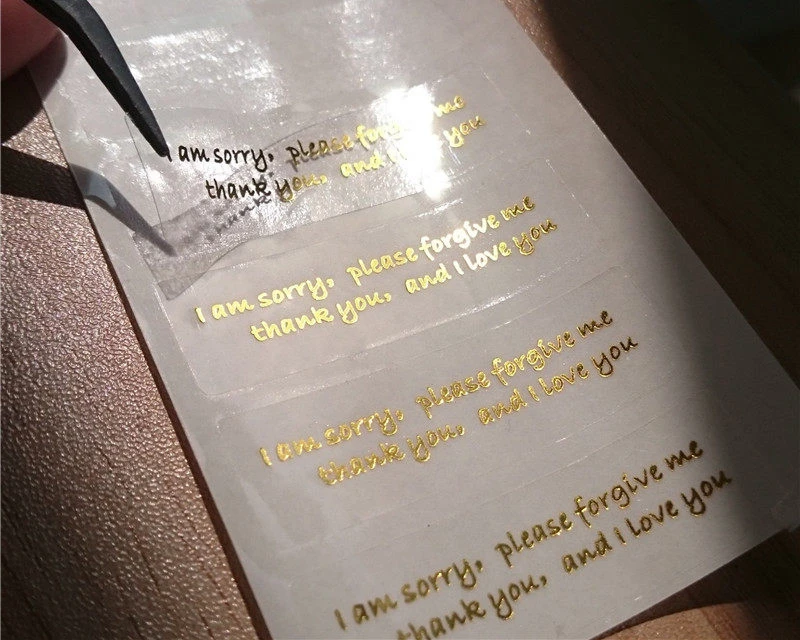 I am sorry, please forgive me
thank you, and I love you
I am sorry, please forgive me
thank you, and I love you
I am sorry, please forgive me
thank you, and I love you
I am sorry, please forgive me
thank you, and I love you